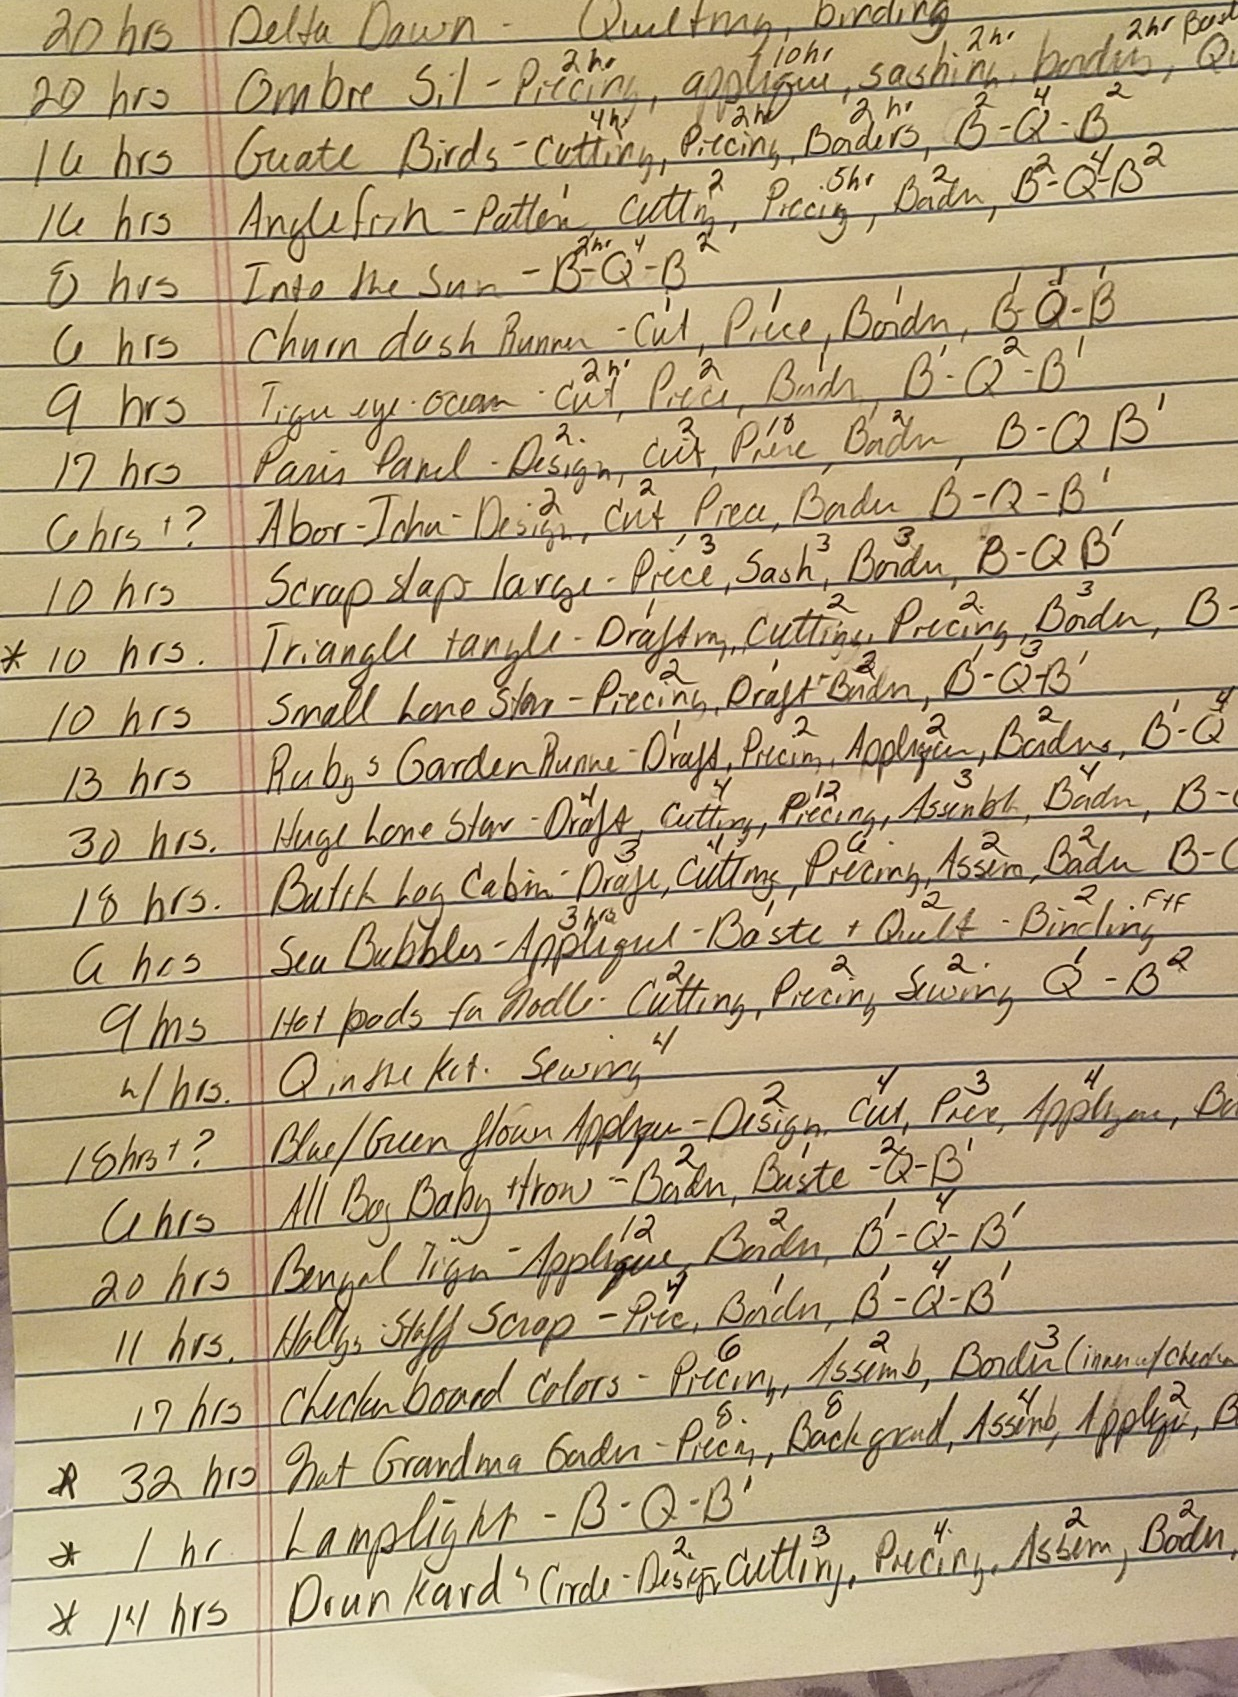 20 hrs Delta Dawn - Quilting, binding
20 hrs Ombre Sil - Piecing 2hr, applique 10hr, sashing 2hr, border 2hr
16 hrs Guate Birds - Cutting 4hr, Piecing 2hr, Borders 2hr, B2-Q4-B2
16 hrs Anglefish - Pattern 1, Cutting 2, Piecing .5hr, Bodn 2, B2-Q4-B2
8 hrs Into the Sun - B2hr-Q4-B2
6 hrs Churn dash Runner - Cut 1, Piece 1, Bordn 1, B1-Q1-B1
9 hrs eye-ocean - Cut 2hr, Piece 2, B1-Q2-B1
17 hrs Paris Panel - Design 2, Cut 2, Piece 10, 2, B-Q B1
6 hrs +? Design 2, Cut 2, Piece, Bordn B-Q-B1
10 hrs Scrap slaps large - Piece 3, Sash 3, Bordn 3, B-Q B1
* 10 hrs. Triangle tangle - Drafting 1, Cutting 2, Piecing 2, Border 3, B-
10 hrs Small Lone Star - Piecing 2, Draft - Bodn 2, B1-Q3-B1
13 hrs Rubys Garden Runne - Draft 1, Piecing 2, Applique 2, 2, B1-Q4
30 hrs. Huge Lone Star - Draft 4, Cutting 4, Piecing 12, 3, Badn 4, B-
18 hrs. Log Cabin - 3, Cutting 4, Piecing 6, Assem 2, Badn 2 B-
6 hrs Sea Bubbles - Applique 3hrs - Baste 1 + Quilt 2 - Binding 2
9 hrs Hot pads - Cutting 2, Piecing 2, Sewing 2 Q1 - B2
4 hrs. Q in the Ket. Sewing 4
18 hrs +? Blue/Green flown Applique - Design 2, Cut 4, Piece 3, Applique 4,
6 hrs All Boy Baby throw - Bodn 2, Baste 1 - 2Q - B1
20 hrs Bengal Tign - Applique 12, Bordn 2, B1-Q4-B1
11 hrs. Hollys Staff Scrap - Piec 4, Bordn 1, B1-Q4-B1
17 hrs Checkn board Colors - Piecing 6, Assemb 2, Bordn 3 (inner w/
* 32 hrs Grandma Gadn - 8, Background 8, Assemb 4, 2, B
* 1 hr Lamplight - B-Q-B1
* 14 hrs Drunkard's Circle - Design 2, Cutting 3, Piecing 4, Assem 2, Bodn 2,